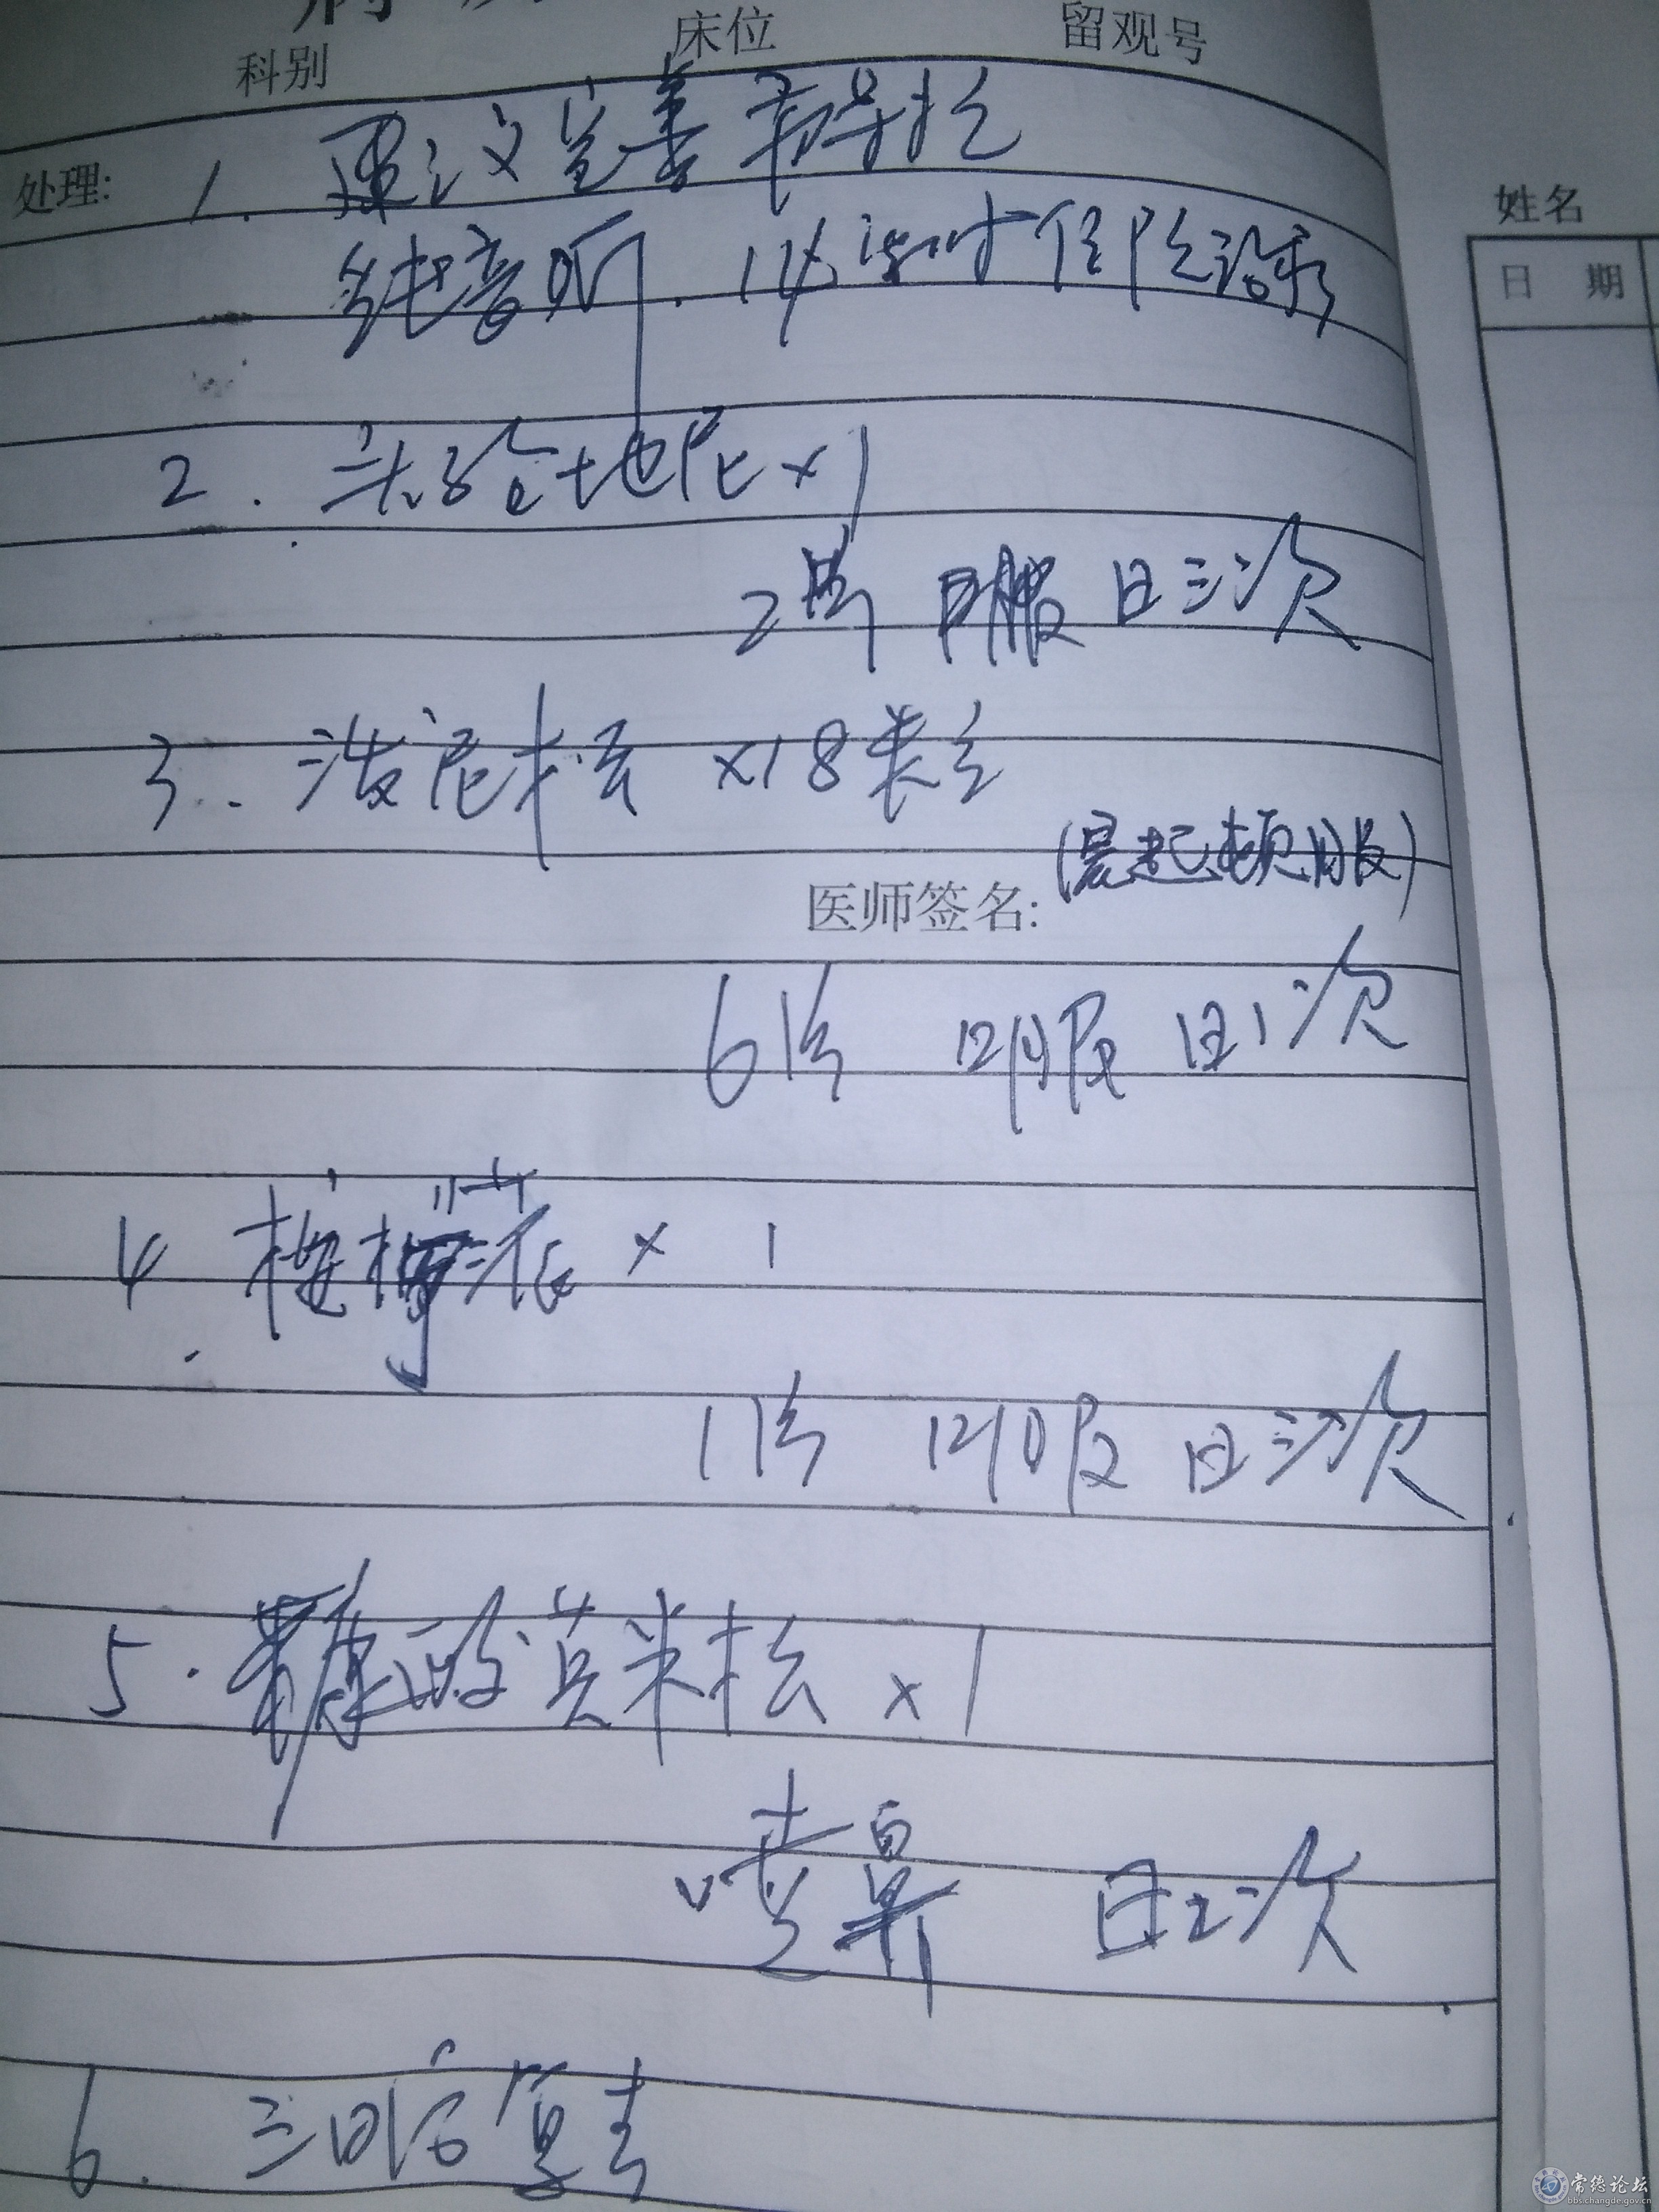 科别 床位 留观号
处理: 1. 建议完善声导抗
纯音听 . 必要时住院诊疗
姓名
日 期
2. 头孢地尼×1
2片 口服 日三次
3. 泼尼松 ×18粒
(晨起顿服)
医师签名:
6片 口服 日1次
4. 桉柠蒎 × 1
1片 口服 日三次
5. 糠酸莫米松 ×1
喷鼻 日2次
6. 三日后复查
常德论坛
bbs.changde.gov.cn